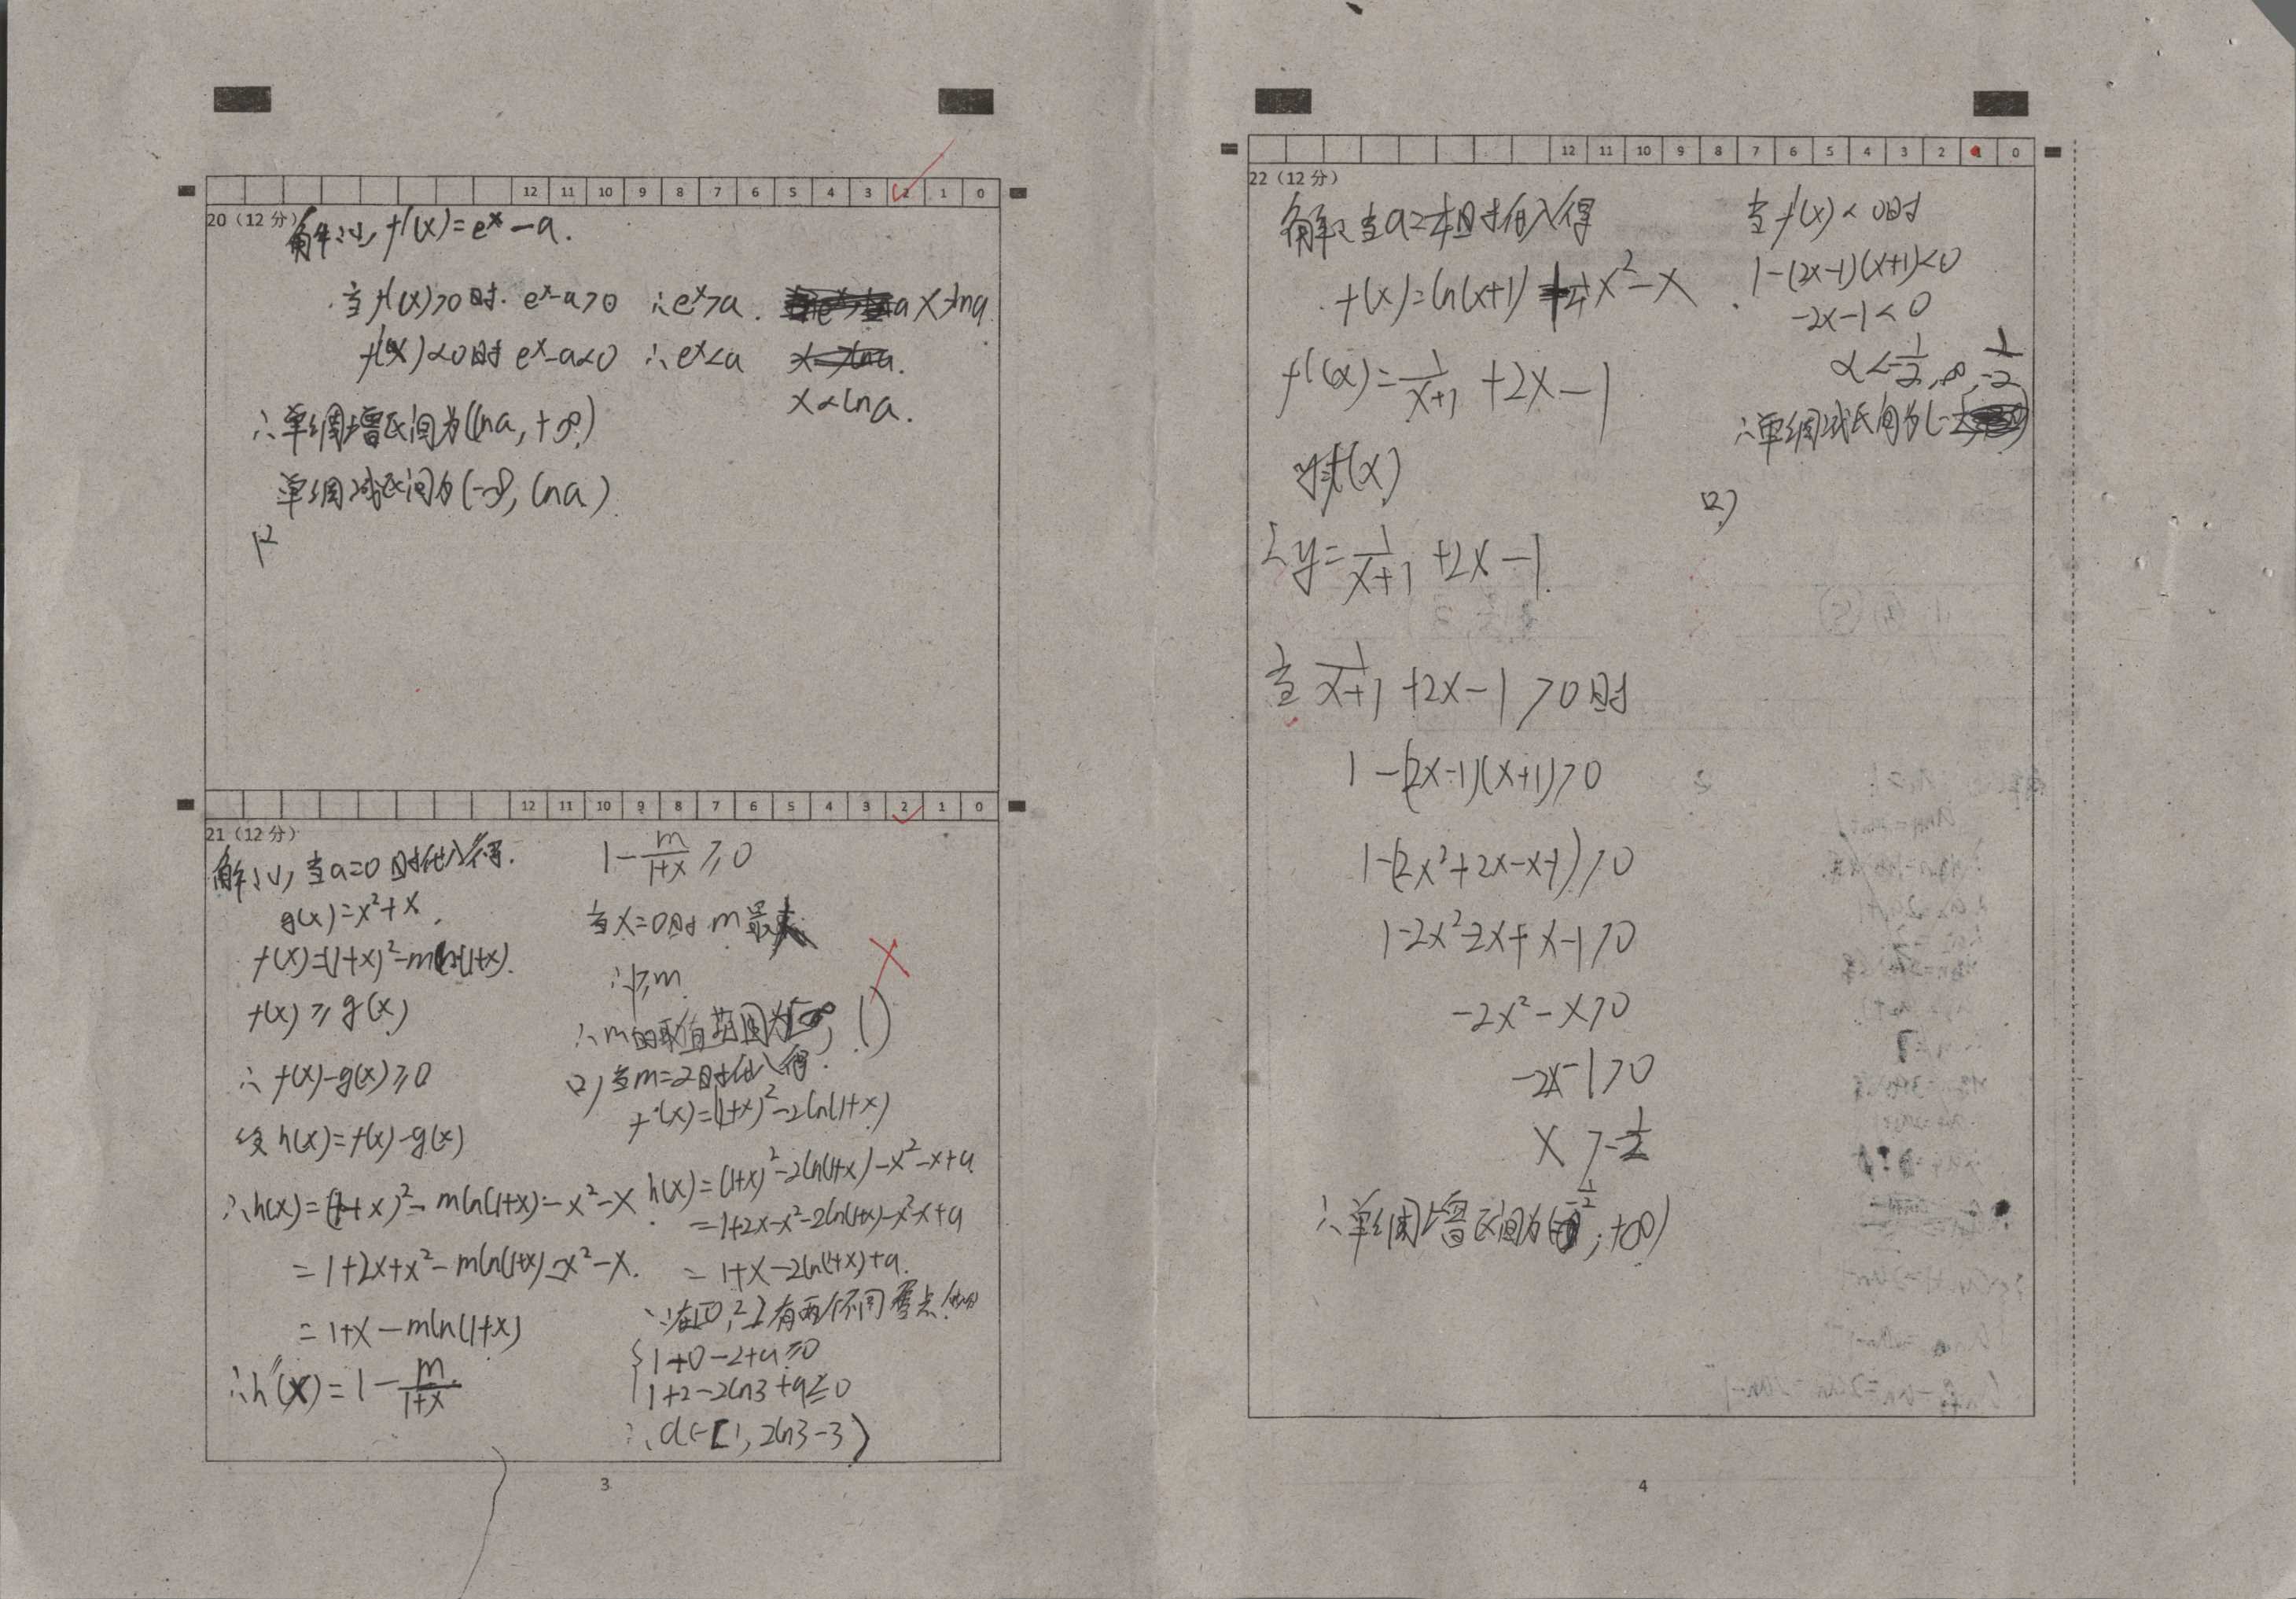 12 11 10 9 8 7 6 5 4 3 2 1 0
20（12 分）
解:(1) f'(x)=e^x-a.
当f'(x)>0时. e^x-a>0 ∴e^x>a. x>lna
f'(x)<0时 e^x-a<0 ∴e^x<a
x<lna.
∴单调增区间为(lna,+∞)
单调减区间为(-∞,lna)
12 11 10 9 8 7 6 5 4 3 2 1 0
21（12 分）
解:(1) 当a=0时代入得.
g(x)=x²+x.
f(x)=(1+x)²-mln(1+x).
f(x)≥g(x)
∴f(x)-g(x)≥0
设h(x)=f(x)-g(x)
∴h(x)=(1+x)²-mln(1+x)-x²-x
=1+2x+x²-mln(1+x)-x²-x.
=1+x-mln(1+x)
∴h'(x)=1-m/(1+x)
1-m/(1+x)≥0
当x=0时 m最大
∴1≥m
∴m的取值范围为
(2)当m=2时代入得.
f(x)=(1+x)²-2ln(1+x)
h(x)=(1+x)²-2ln(1+x)-x²-x+a
=1+2x-x²-2ln(1+x)-x²-x+a
=1+x-2ln(1+x)+a.
∵在[0,2]有两个不同零点
1+0-2+a≥0
1+2-2ln3+a≥0
∴a∈[1,2ln3-3)
3
12 11 10 9 8 7 6 5 4 3 2 1 0
22（12 分）
解:当a=时代入得
f(x)=ln(x+1)+x²-x
f'(x)=1/(x+1)+2x-1
y=f'(x)
∴y=1/(x+1)+2x-1.
当1/(x+1)+2x-1>0时
1-(2x-1)(x+1)>0
1-(2x²+2x-x-1)>0
1-2x²-2x+x-1>0
-2x²-x>0
-2x-1>0
x>-1/2
∴单调增区间为(-1/2,+∞)
当f'(x)<0时
1-(2x-1)(x+1)<0
-2x-1<0
x<-1/2
∴单调减区间为(-∞,-1/2)
(2)
4